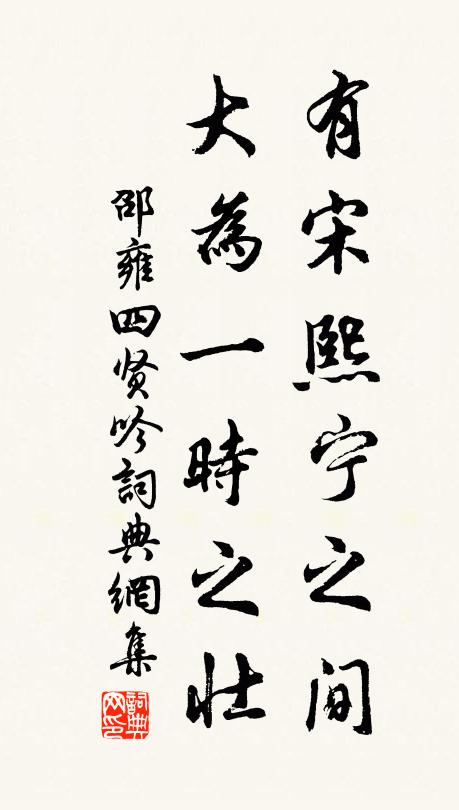 有宋熙宁之间
大為一時之壮
邵雍四贤吟詞典網集
詞典
网印